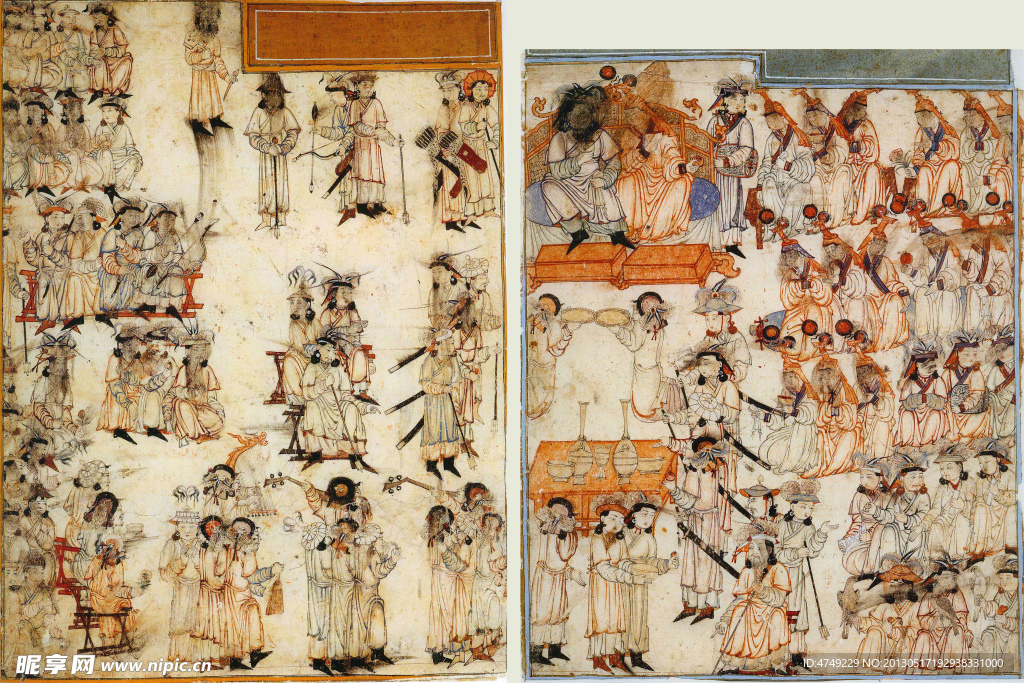 昵享网 www.nipic.cn
ID:4749229 NO:20130517192938331000